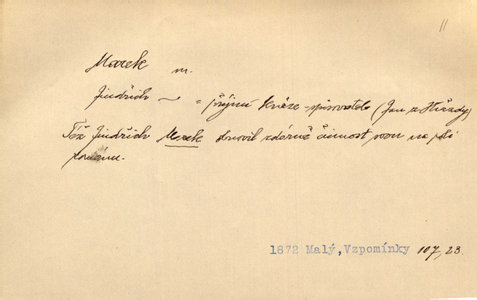 11
Marek m.
Jindřich ~ = příjmí kněze-spisovatele (Jan z Hvězdy)
Též Jindřich Marek slavil zdárně činnost svou na poli
románu.
1872 Malý, Vzpomínky 107, 23.